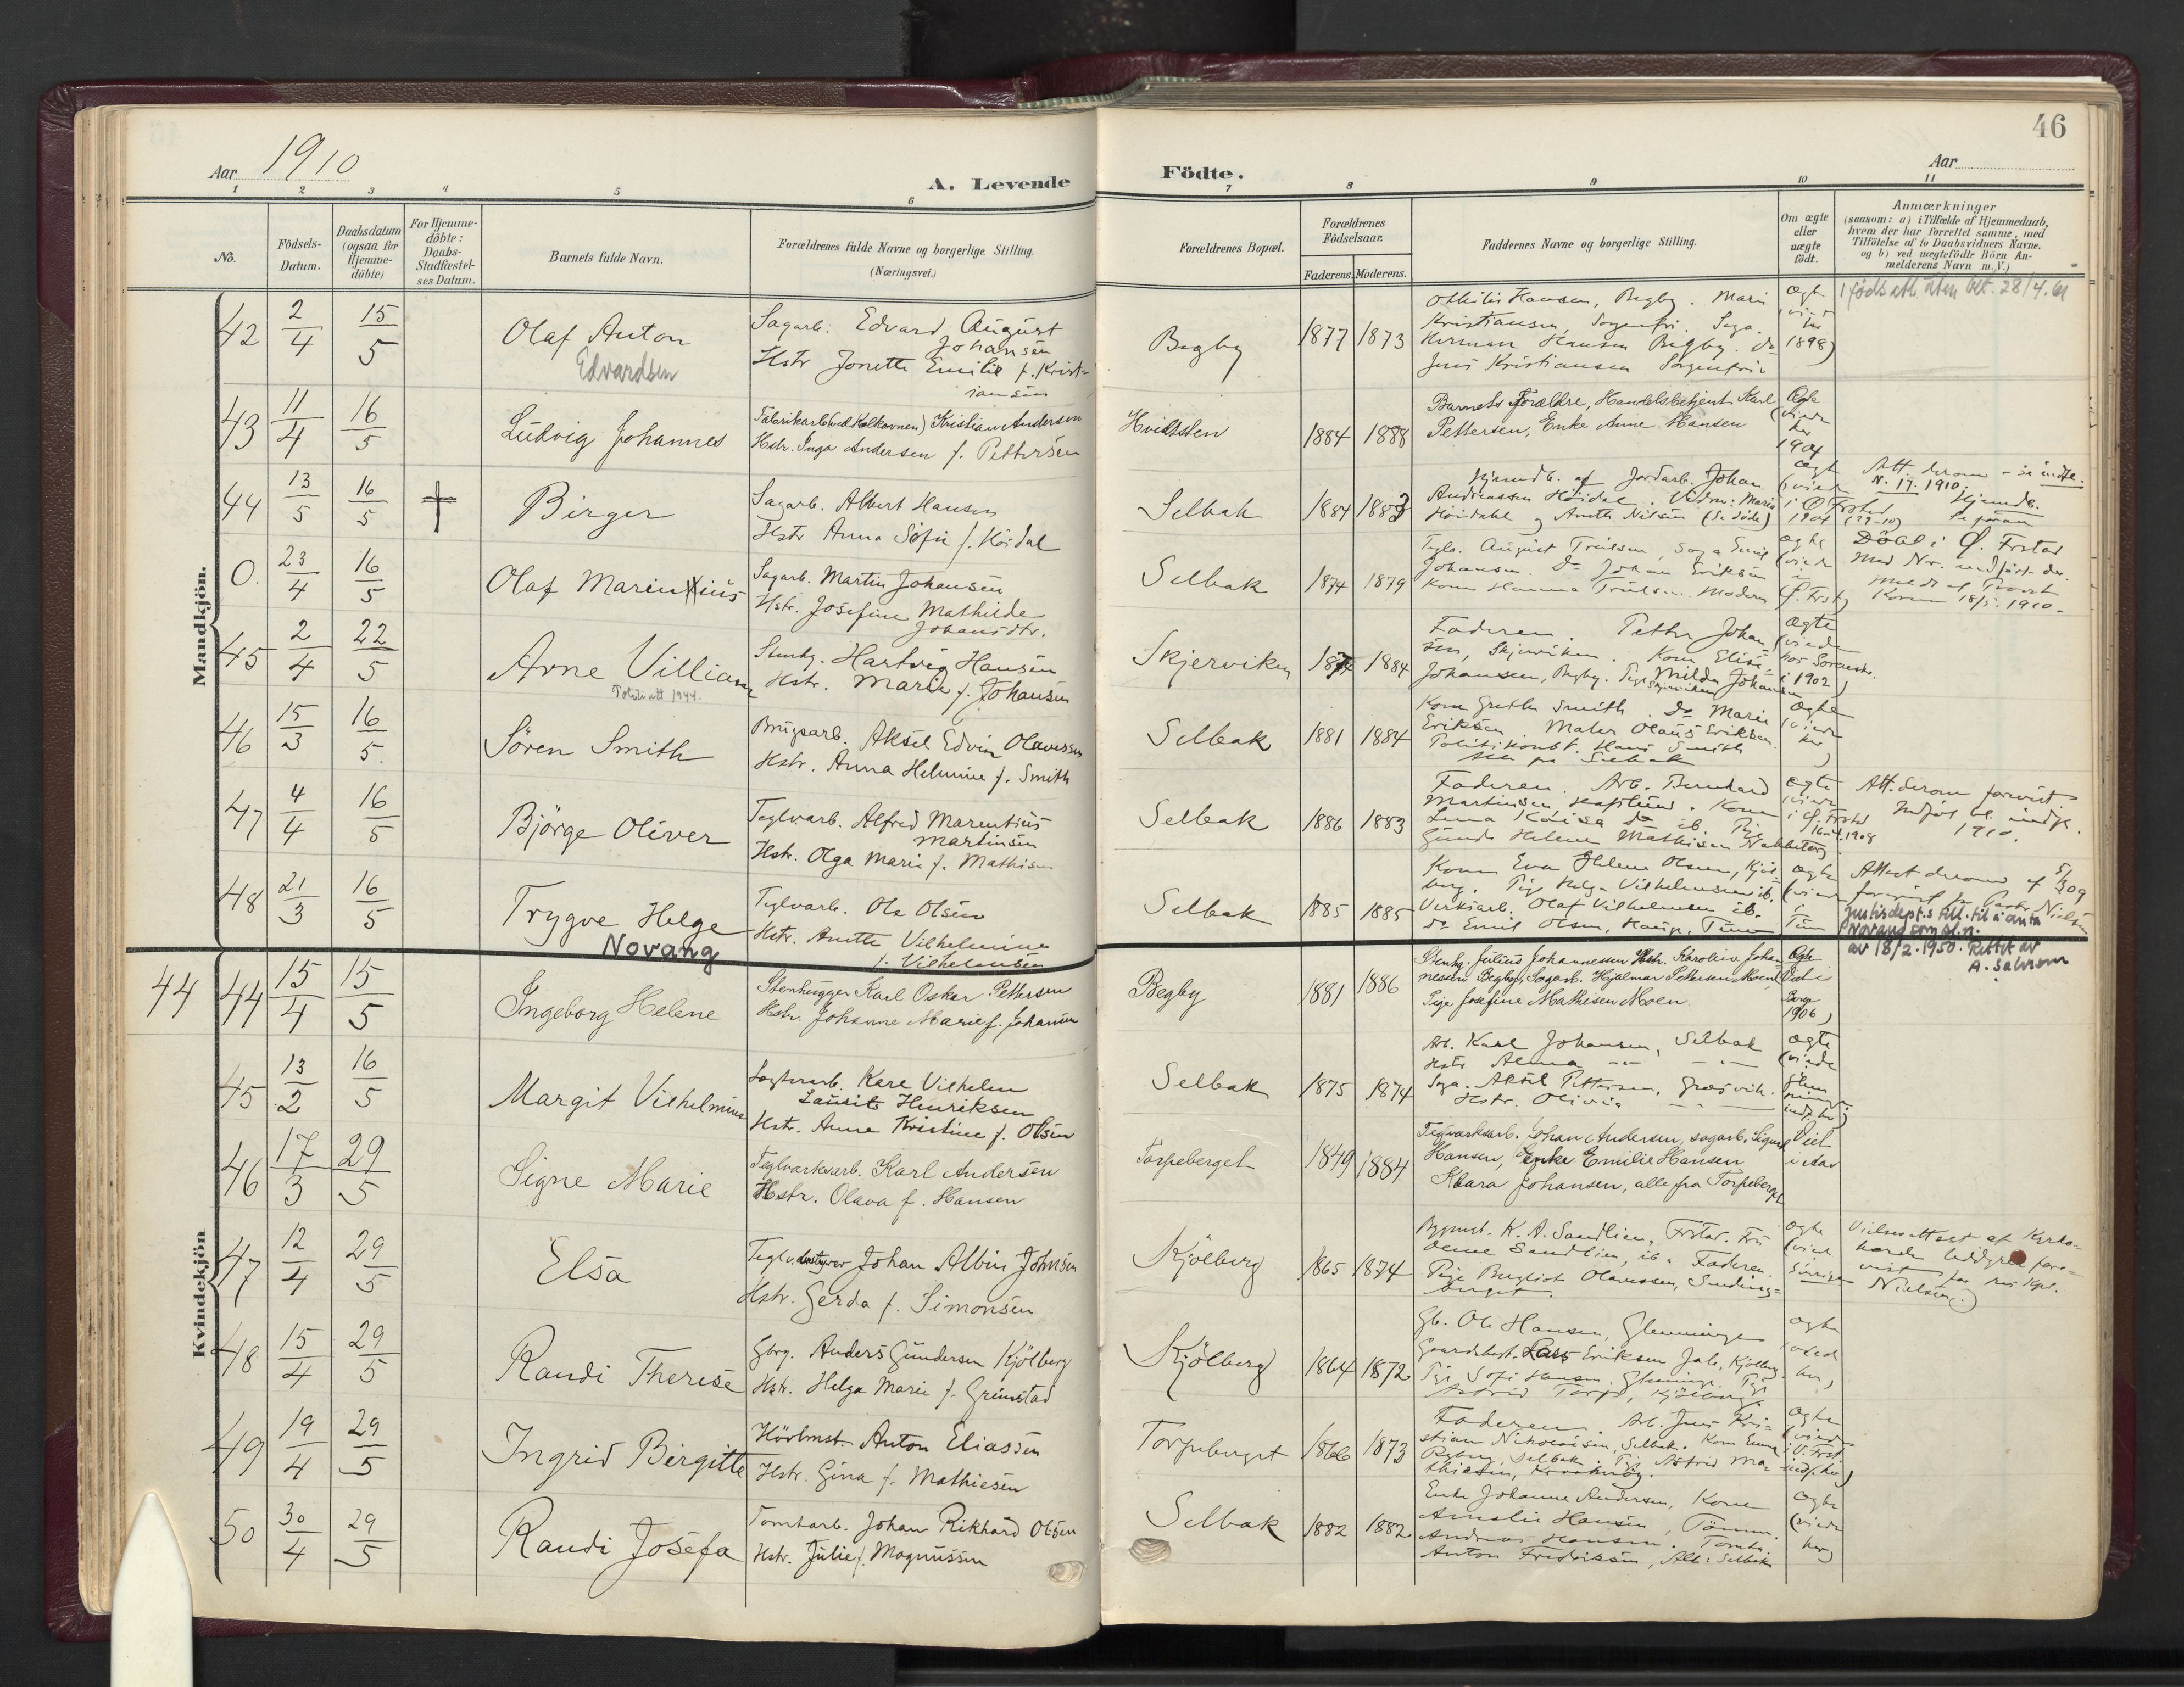 46
Aar 1910
A. Levende Födte.
Aar
1 2 3 4 5 6 7 8 9 10 11
No.
Födsels-Datum.
Daabsdatum (ogsaa for Hjemme-döbte)
For Hjemme-döbte: Daabs-Stadfæstel-ses Datum.
Barnets fulde Navn.
Forældrenes fulde Navne og borgerlige Stilling.
(Næringsvei.)
Forældrenes Bopæl.
Forældrenes Födselsaar.
Faderens. Moderens.
Faddernes Navne og borgerlige Stilling.
Om ægte eller uægte födt.
Anmærkninger
(saasom: a) i Tilfælde af Hjemmedaab,
hvem der har forrettet samme, med
Tilföielse af to Daabsvidners Navne.
og b) ved uægtefödte Börn An-
melderens Navn m. V.)
Mandkjön.
42 2/4 15/5 Olaf Anton
Edvardsen
Sagarb. Edvard August
Johansen
Hstr Jonette Emilie f. Krist-
iansen
Begby 1877 1873
Othilie Hansen, Begby. Marie
Kristiansen, Sorgenfri. Saga.
Herman Hansen Begby. do
Jens Kristiansen Sorgenfri
Ægte
1898)
43 11/4 16/5 Ludvig Johannes
Fabrikarb (ved Kalkovnen) Kristian Andersen
Hstr. Inga Andersen f. Pettersen
Hvidsten 1884 1888
Barnets Forældre, Handelsbetjent Karl
Pettersen, Enke Anne Hansen
Ægte
(viede
her
1904
44 13/5 16/5 † Birger
Sagarb. Albert Hansen
Hstr Anna Sofie f. Höidal
Selbak 1884 1883
Hjemdb. af Jordarb. Johan
Andreassen Höidal. Vidne: Marie
Höidahl og Anette Nilsen (Se döde)
ægte
(viede
i Ø Frstad
1904 (29-10)
Att. derom - se indte.
N. 17. 1910.
Hjemdb.
Se foran
0. 23/4 16/5 Olaf Marentius
Sagarb. Martin Johansen
Hstr. Josefine Mathilde
Johansdtr.
Selbak 1874 1879
Teglv. August Truelsen, Saga Emil
Johansen. Do Johan Eriksen
Kone Hanna Truelsen. Moderen
ægte
(viede
i
Ø. Frst)
Döbt i Ø. Frstad
med Nr. indfört der.
meldt af Provst
Koren 18/5. 1910.
45 2/4 22/5 Arne Villiam
Stenhg. Hartvig Hansen
Hstr. Marie f. Johansen
Skjerviken 1874 1884
Faderen. Petter Johan
sen, Skjerviken. Kone Elise
Johansen, Begby. Pige Milda Johansen
Skjerviken
ægte
(viede
hos Sorenskr.
i 1902)
46 15/3 16/5. Sören Smith
Brugsarb. Aksel Edvin Olaversen
Hstr. Anna Helmine f. Smith
Selbak 1881 1884
Kone Grethe Smith. Do Marie
Eriksen Maler Olaus Eriksen.
Politikonst. Hans Smith
Alle fra Selbak
Ægte
(viede
her)
47 4/4 16/5 Björge Oliver
Teglvarb. Alfred Marentius
Martinsen
Hstr. Olga Marie f. Mathisen
Selbak 1886 1883
Faderen. Arb. Bernhard
Martinsen, Kapellund. Kone
Lovise do ib. Pige
Gunda Helene Mathisen
ægte
(viede
i Ø. Frstad
1908
Att. derom forevist.
Indfört bl. indg.
1910.
48 21/3 16/5 Trygve Helge
Novang
Teglvarb. Ole Olsen
Hstr. Anette Vilhelmine
f. Vilhelmsen
Selbak 1885 1885
Kone Eva Helene Olsen, Kjöl-
berg. Pige Helga Vilhelmsen ib.
Verksarb. Olaf Vilhelmsen ib.
Do Emil Olsen, Haug, Tune
ægte
(viede
i
Tune
Attest derom af 5/3 09
forevist for Pastor Nielsen
Justisdept.s till. til å anta
Novang som sl.n.
av 18/2. 1950. Rettet av
Kvindekjön
44 44 15/4 15/5 Ingeborg Helene
Stenhugger Karl Oskar Pettersen
Hstr. Johanne Marie f. Johansen
Begby 1881 1886
Stenhg. Julius Johannessen Hstr. Karoline Johan
nesen Begby, Sagarb. Hjalmar Pettersen Moen
Pige Josefine Mathisen Moen
Ægte
Viet i
Borge
1906)
45 13/2 16/5 Margit Vilhelmine
Sagtomtarb. Karl Vilhelm
Laurits Henriksen
Hstr. Anne Kristine f. Olsen
Selbak 1875 1874
Arb. Karl Johansen, Selbak
Hstr Alma
Saga. Aksel Pettersen, Græsvik.
Hstr. Olivia
ægte
(viede
Glem
minge
46 17/3 29/5 Signe Marie
Teglværksarb. Karl Andersen
Hstr. Olava f. Hansen
Torpeberget 1849 1884
Teglværksarb. Johan Andersen, sagarb. Sigurd
Hansen, Enke Emilie Hansen
Klara Johansen, alle fra Torpeberget
Viet
47 12/4 29/5 Elsa
Teglv.bestyrer Johan Albin Johnsen
Hstr. Gerda f. Simonsen
Kjölberg 1865 1874
Bygmst. K. A. Sandlien, Frstad. Fru
Sandlien, ib. Faderen.
Pige Bergliot Olaussen
ægte
(viet
i
Sverige
Vielsesattest af Kyrko-
herde fore-
vist for res. Kpl.
Nielsen.)
48 15/4 29/5 Randi Therese
Gbrg. Anders Gundersen Kjölberg
Hstr. Helga Marie f. Grimstad
Kjölberg 1864 1872
Gb. Ole Hansen, Glemminge
Gaardbest. Lars Eriksen Jale, Kjölberg
Pige Sofie Hansen, Glemminge. Pige
Astrid Torp, Kjölberg
ægte
(viede
her)
49 19/4 29/5 Ingrid Birgitte
Hövlmst. Anton Eliassen
Hstr. Gina f. Mathiesen
Torpeberget 1866 1873
Faderen. Arb. Jens Kri-
stian Nikolaisen, Selbak. Kone Emma
Selbak. Pige Astrid Ma-
thiesen
ægte
(viede
i V. Frst
50 30/4 29/5 Randi Josefa
Tomtarb. Johan Rikhard Olsen
Hstr. Julie f. Magnussen
Selbak 1882 1882
Enke Johanne Andersen, Kone
Amalie Hansen, Tömm.
Andreas Hansen. Tomta.
Anton Fredriksen, Alle: Selbak
ægte
(viede
her)